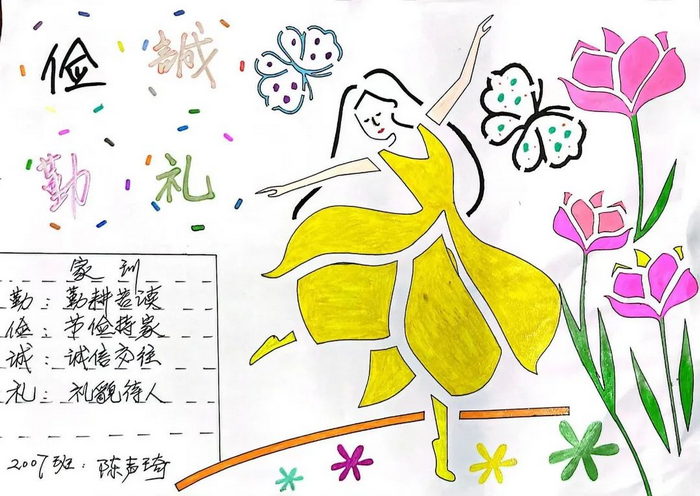 俭 誠
勤 礼
家训
勤：勤耕苦读
俭：节俭持家
诚：诚信交往
礼：礼貌待人
2007班：陈声琦